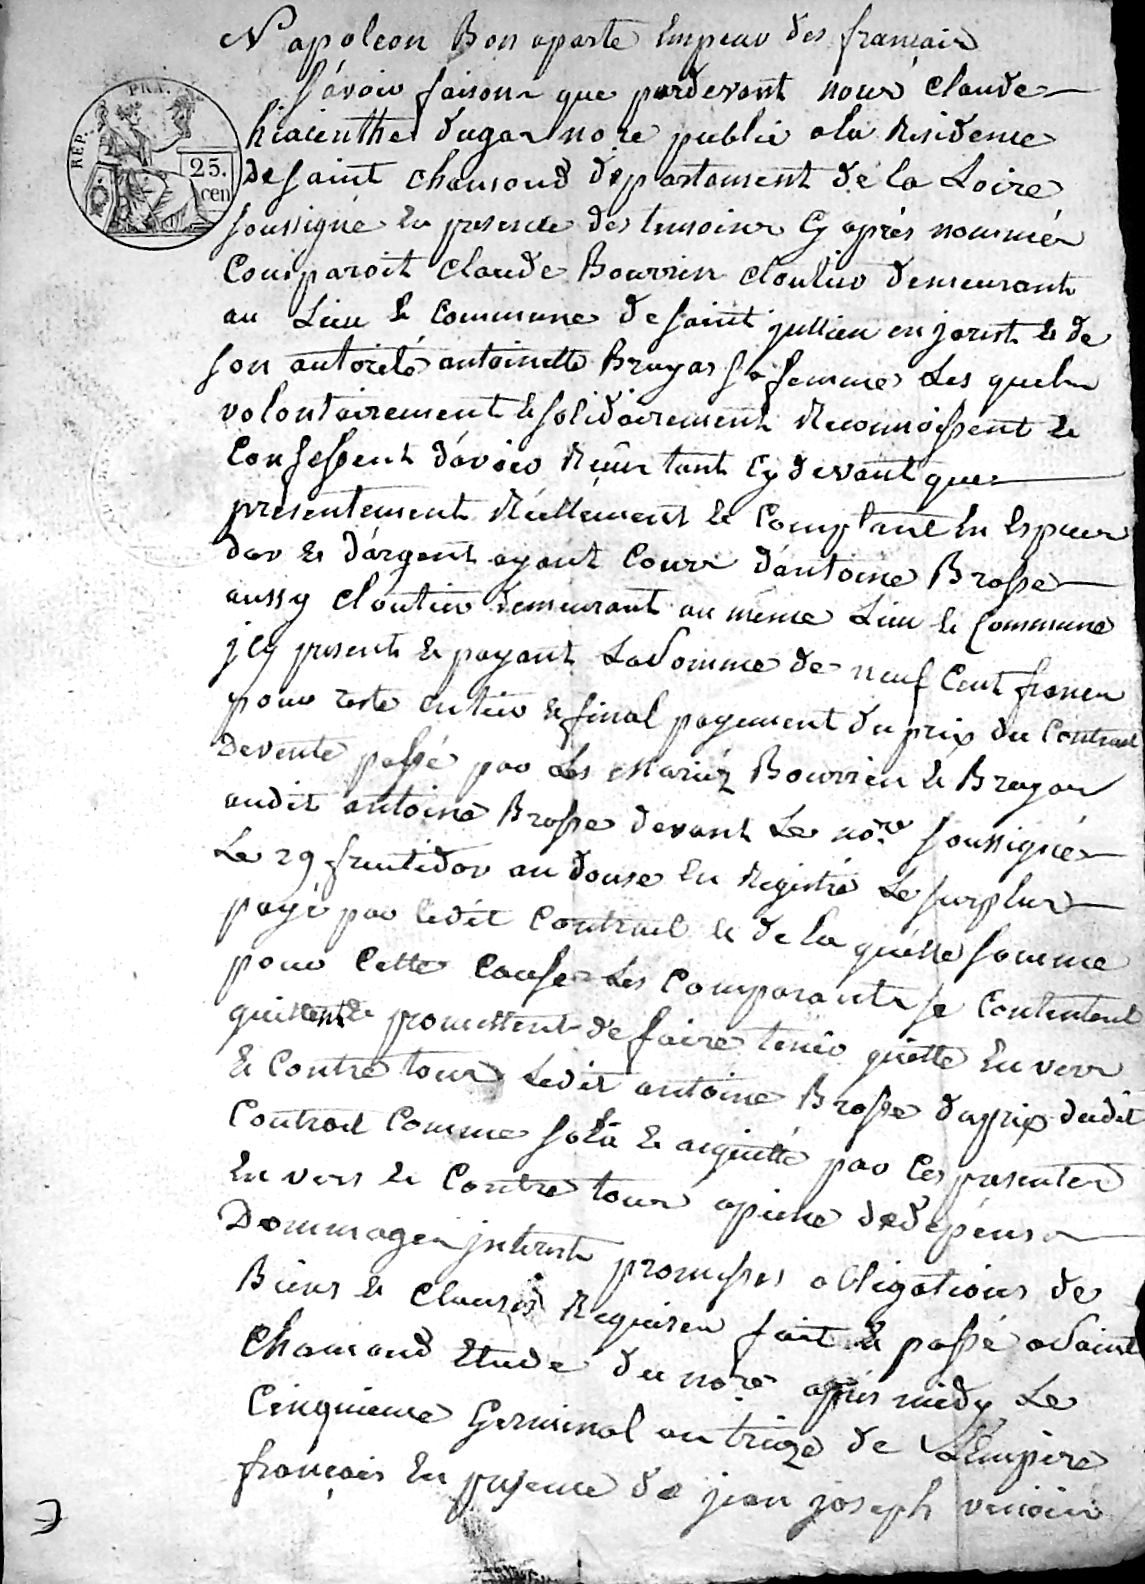 Napoleon Bonaparte Empeur des francais
Sávoir faisons que pardevant nous Claude
hiacinthe dugas nore public a la Residence
de saint chamond département de la Loire
REP. FRA.
25.
cen
soussigné En presence des temoins Cy aprés nommés
Comparoit Claude Bourrin cloutier demeurant
au Lieu & commune de saint jullien en jarest & de
son autorité antoinette Bruyas sa femme Les quels
volontairement & solidairement Reconnoissent &
Confessent d'avoir Reçu tant Cy devant que
présentement Réellement & Comptant En Especes
dor & d'argent ayant Cours d'antoine Brosse
aussy cloutier demeurant au même Lieu & Commune
jcy present & payant La Somme de neuf Cent francs
pour reste entier & final payement du prix du Contract
de vente passé par Les mariéz Bourrin & Bruyas
audit antoine Brosse devant Le nore. soussigné
Le 29 fructidor an douse En Registré Le surplus
payé par ledit Contract & de la quelle somme
pour Cette Cause Les Comparants se Contentent
quittent & promettent de faire tenir quitte En vers
& Contre tous Ledit antoine Brosse du prix dudit
Contract Comme soldé & acquitté par Ces presentes
En vers & Contre tous apeine de depens
Dommages jnterests promesses obligations de
Biens & Clauses Requises fait & passé a Saint
Chamond Etude du nore. après midy Le
Cinquieme Germinal an treize de L'Empire
français En presence de jean joseph
3